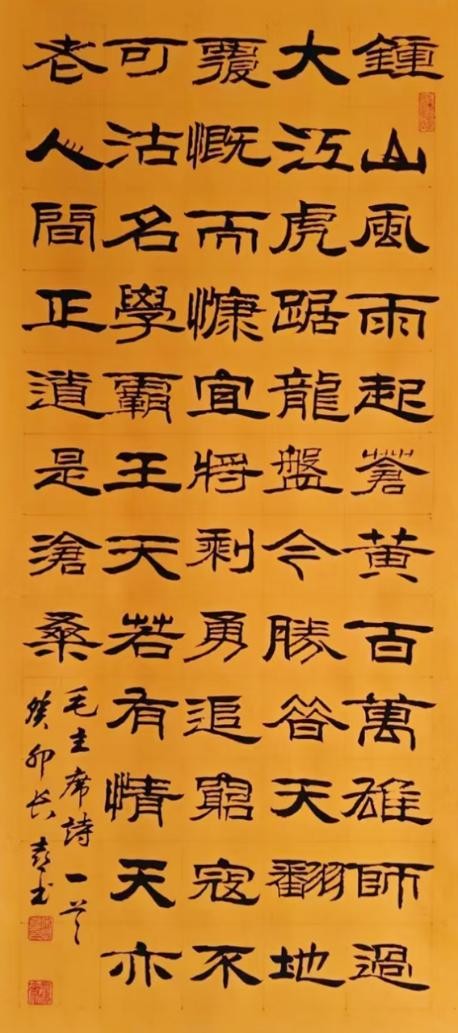 鍾山風雨起蒼黃百萬雄師過
大江虎踞龍盤今勝昔天翻地
覆慨而慷宜將剩勇追窮寇不
可沽名學霸王天若有情天亦
老人間正道是滄桑
毛主席詩一首
癸卯長書